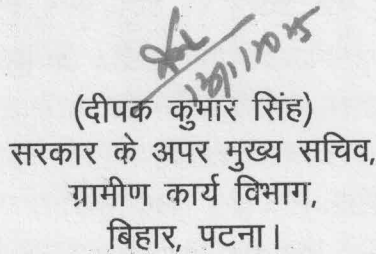 (दीपक कुमार सिंह)
सरकार के अपर मुख्य सचिव,
ग्रामीण कार्य विभाग,
बिहार, पटना।